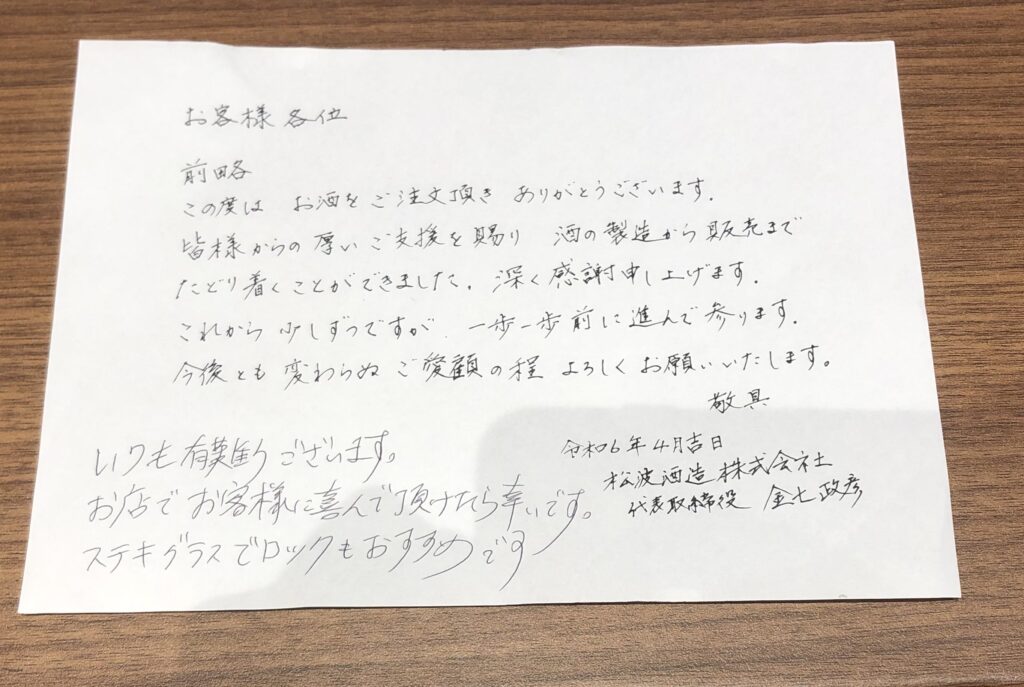 お客様 各位
前略
この度は お酒をご注文頂き ありがとうございます.
皆様からの厚いご支援を賜り 酒の製造から販売まで
たどり着くことができました. 深く感謝申し上げます.
これから 少しずつですが 一歩一歩前に進んで参ります.
今後とも 変わらぬ ご愛顧の程 よろしくお願いいたします。
敬具
令和6年4月吉日
松波酒造株式会社
代表取締役 金七政彦
いつも有難うございます。
お店でお客様に喜んで頂けたら幸いです。
ステキグラスでロックもおすすめです